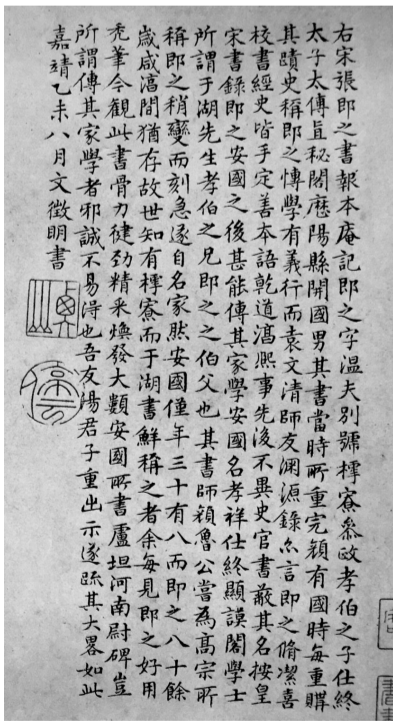 右宋張即之書報本庵記即之字溫夫別號樗寮參政孝伯之子仕終
太子太傅直秘閣歷陽縣開國男其書當時所重完顏有國時每重購
其蹟史稱即之慱學有義行而袁文清師友淵源錄亦言即之脩潔喜
校書經史皆手定善本語乾道淳熙事先後不異史官書蔽其名按皇
宋書錄即之安國之後甚能傳其家學安國名孝祥仕終顯謨閣學士
所謂于湖先生孝伯之兄即之之伯父也其書師顏魯公嘗為高宗所
稱即之稍變而刻急遂自名家然安國僅年三十有八而即之八十餘
歲咸淳間猶存故世知有樗寮而于湖書鮮稱之者余每見即之好用
禿筆今觀此書骨力健勁精采煥發大類安國所書盧坦河南尉碑豈
所謂傳其家學者邪誠不易得也吾友湯君子重出示遂疏其大畧如此
嘉靖乙未八月文徵明書